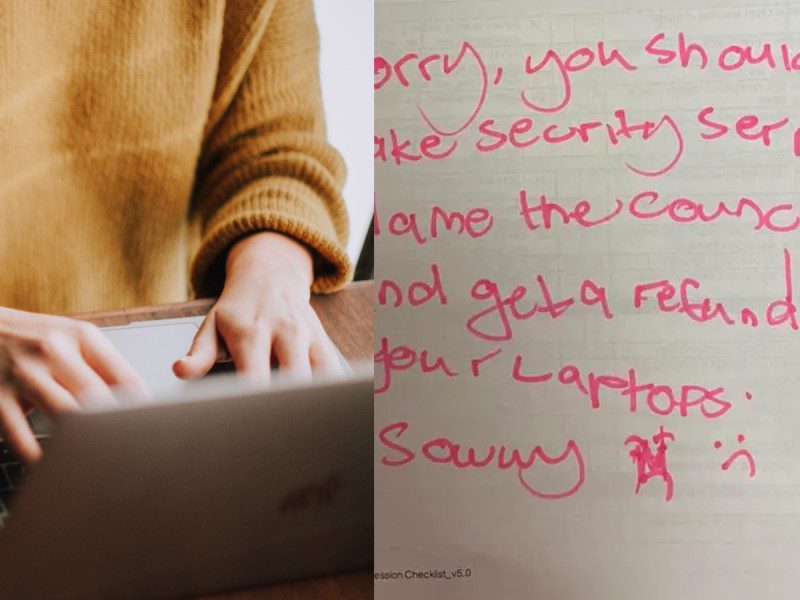 orry, you should
ake security ser
lame the counc
nd get a refund
your Laptops.
Sowwy :(
ession Checklist_v5.0